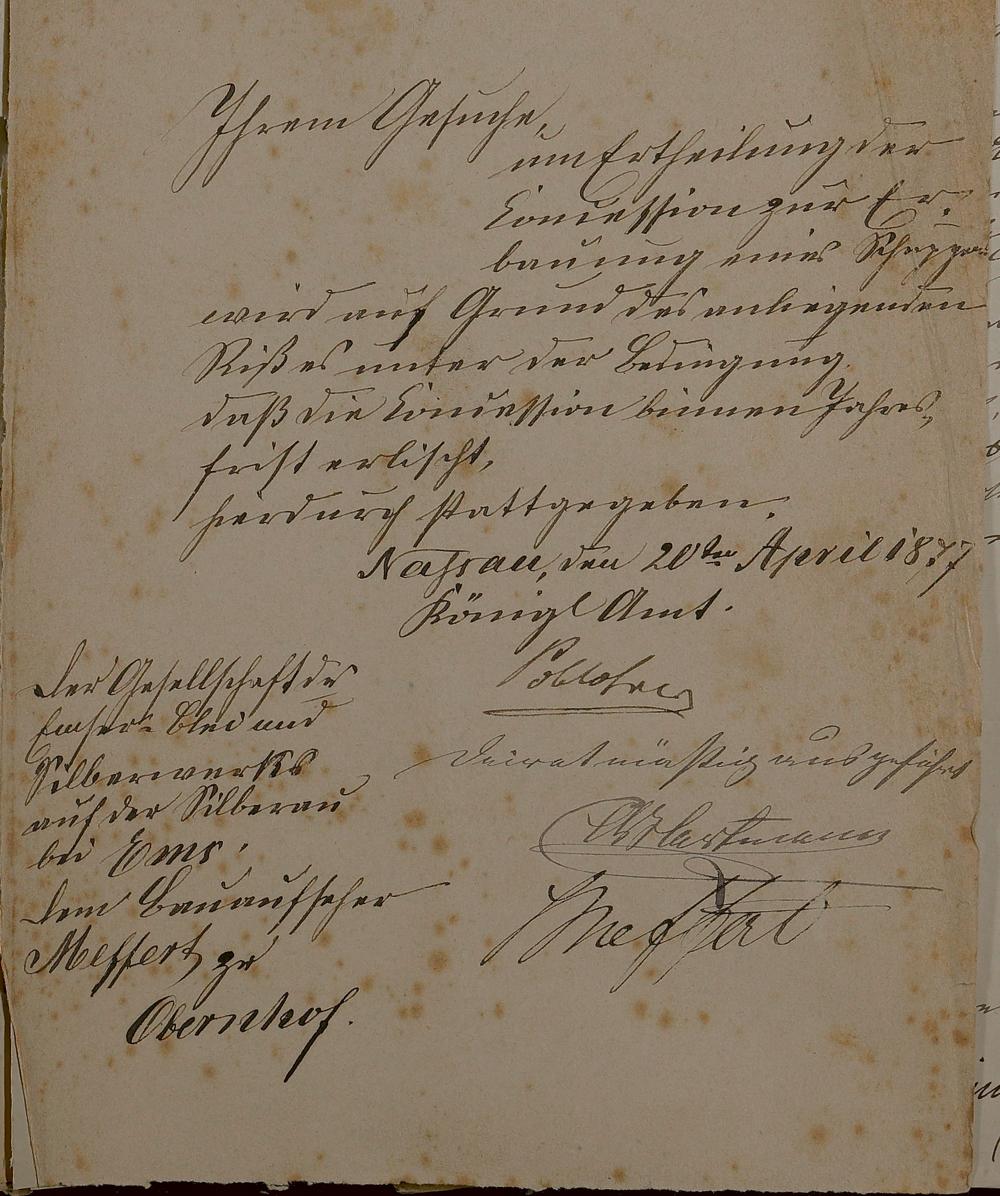 Ihrem Gesuche,
um Ertheilung der
Concession zur Er-
bauung eines Schuppens
wird auf Grund des anliegenden
Rißes unter der Bedingung
daß die Concession binnen Jahres-
frist erlischt,
hierdurch stattgegeben.
Nassau, den 20ten April 1877
Königl Amt.
Der Gesellschaft des
Emser- Blei und
Silberwerks
auf der Silberau
bei Ems.
Dem Bauaufseher
Meffert zu
Obernhof.
ausgeführt
Hartmann
Meffert